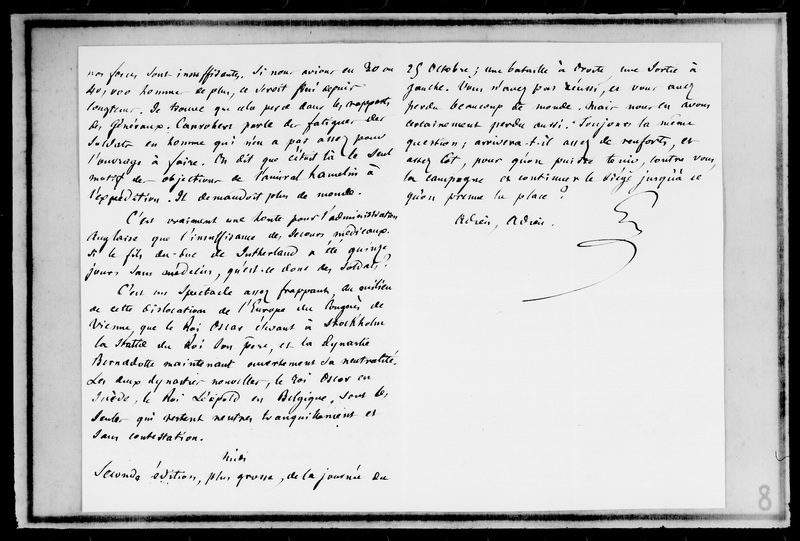 nos forces sont insuffisantes. Si nous avions eu 30 ou
40,000 hommes de plus, ce seroit fini depuis
longtems. Je trouve que cela perce dans les rapports
des Généraux. Canrobert parle des fatigues des
Soldats en homme qui n'en a pas assez pour
l'ouvrage à faire. On dit que c'était là le seul
motif des objections de l'amiral hamelin à
l'expédition. Il demandoit plus de monde.
C'est vraiment une honte pour l'administration
Anglaise que l'insuffisance des secours médicaux.
Si le fils du Duc de Sutherland a été quinze
jours sans médecin, qu'est-ce donc des Soldats?
C'est un Spectacle assez frappant, au milieu
de cette dislocation de l'Europe du Congrès de
Vienne, que le Roi Oscar élevant à Stockholm
la Statue du Roi son père, et la dynastie
Bernadotte maintenant ouvertement sa neutralité.
Les deux dynasties nouvelles, le roi Oscar en
Suède, le Roi Léopold en Belgique, sont les
seules qui restent neutres tranquillement et
sans contestation.
Midi
Seconde édition, plus grosse, de la journée du
25 Octobre; une bataille à droite, une Sortie à
gauche. Vous n'avez pas réussi, et vous avez
perdu beaucoup de monde. Mais nous en avons
certainement perdu aussi. Toujours la même
question; arrivera-t-il assez de renforts, et
assez tôt, pour qu'on puisse tenir, contre vous,
la campagne et continuer le siège jusqu'à ce
qu'on prenne la place?
Adieu, Adieu.
8